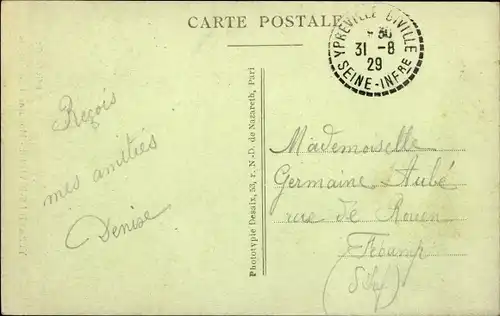 CARTE POSTALE
YPREVILLE BIVILLE
31 -8
29
SEINE-INFRE
Reçois
mes amitiés
Denise
Phototypie Desaix, 53, r. N.-D. de Nazareth, Pari
Mademoiselle
Germaine Aubé
rue de Rouen
Fécamp